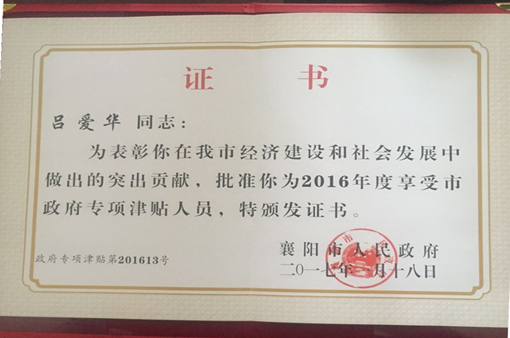 证 书
吕爱华 同志：
为表彰你在我市经济建设和社会发展中
做出的突出贡献，批准你为2016年度享受市
政府专项津贴人员，特颁发证书。
襄阳市人民政府
政府专项津贴第201613号
二〇一七年一月十八日